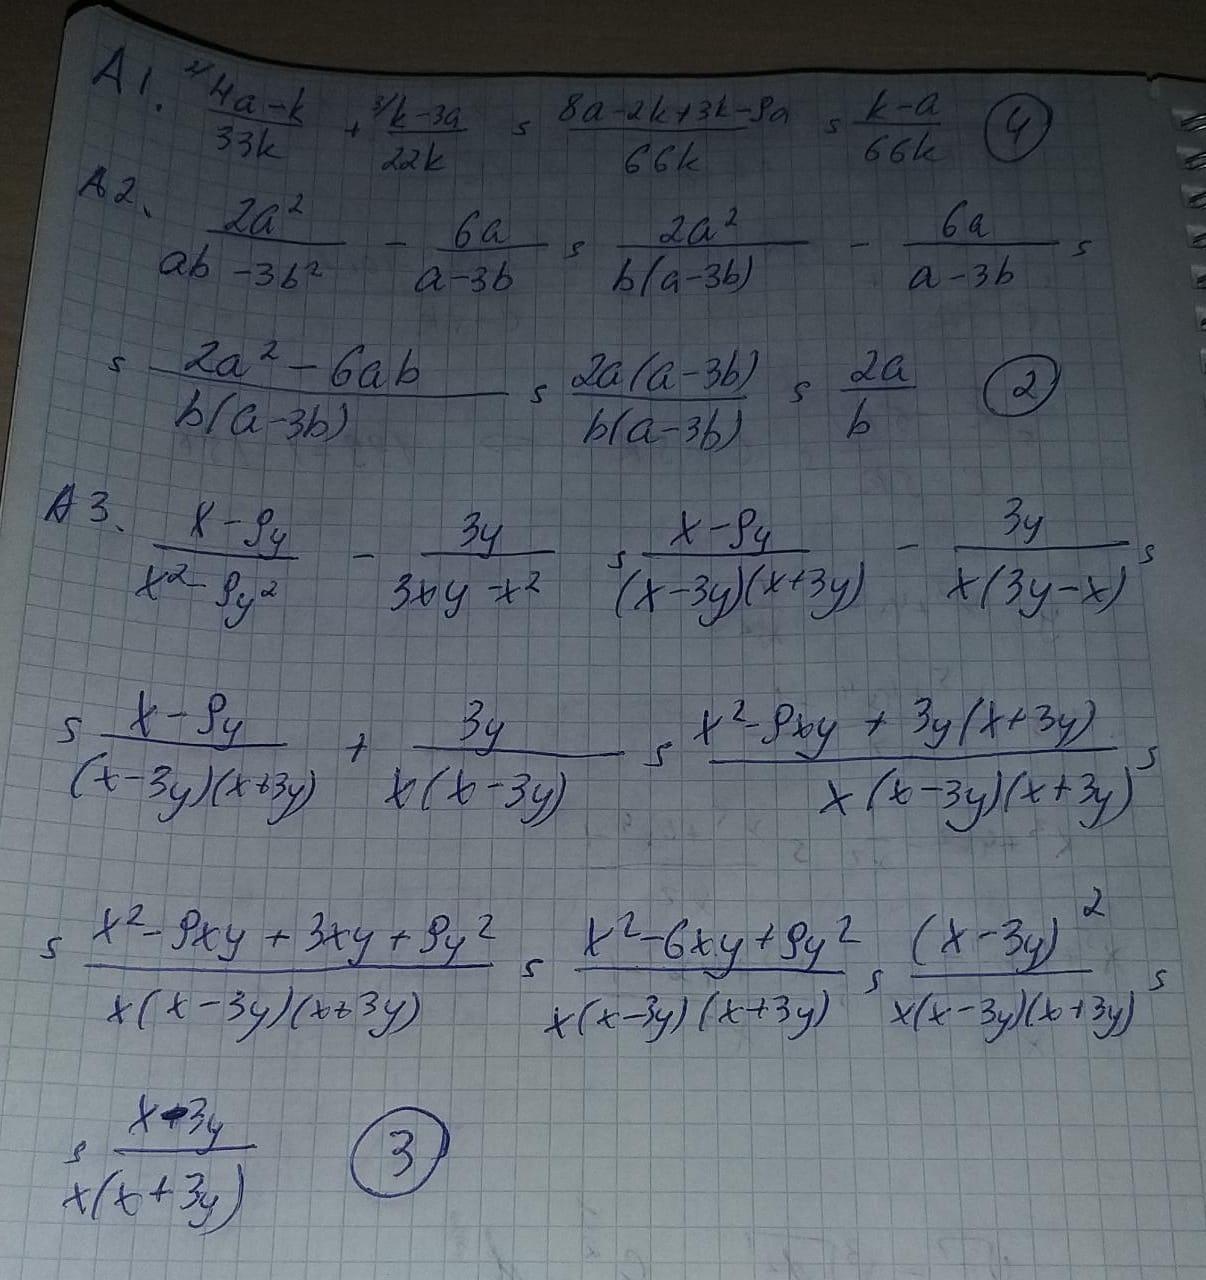 A1. ²⁄ (4a-k)/(33k) + ³⁄ (k-3a)/(22k) = (8a-2k+3k-9a)/(66k) = (k-a)/(66k) ④
A2. (2a²)/(ab-3b²) - (6a)/(a-3b) = (2a²)/(b(a-3b)) - (6a)/(a-3b) =
= (2a²-6ab)/(b(a-3b)) = (2a(a-3b))/(b(a-3b)) = (2a)/(b) ②
A3. (x-9y)/(x²-9y²) - (3y)/(3xy-x²) = (x-9y)/((x-3y)(x+3y)) - (3y)/(x(3y-x)) =
= (x-9y)/((x-3y)(x+3y)) + (3y)/(x(x-3y)) = (x²-9xy+3y(x+3y))/(x(x-3y)(x+3y)) =
= (x²-9xy+3xy+9y²)/(x(x-3y)(x+3y)) = (x²-6xy+9y²)/(x(x-3y)(x+3y)) = ((x-3y)²)/(x(x-3y)(x+3y)) =
= (x-3y)/(x(x+3y)) ③